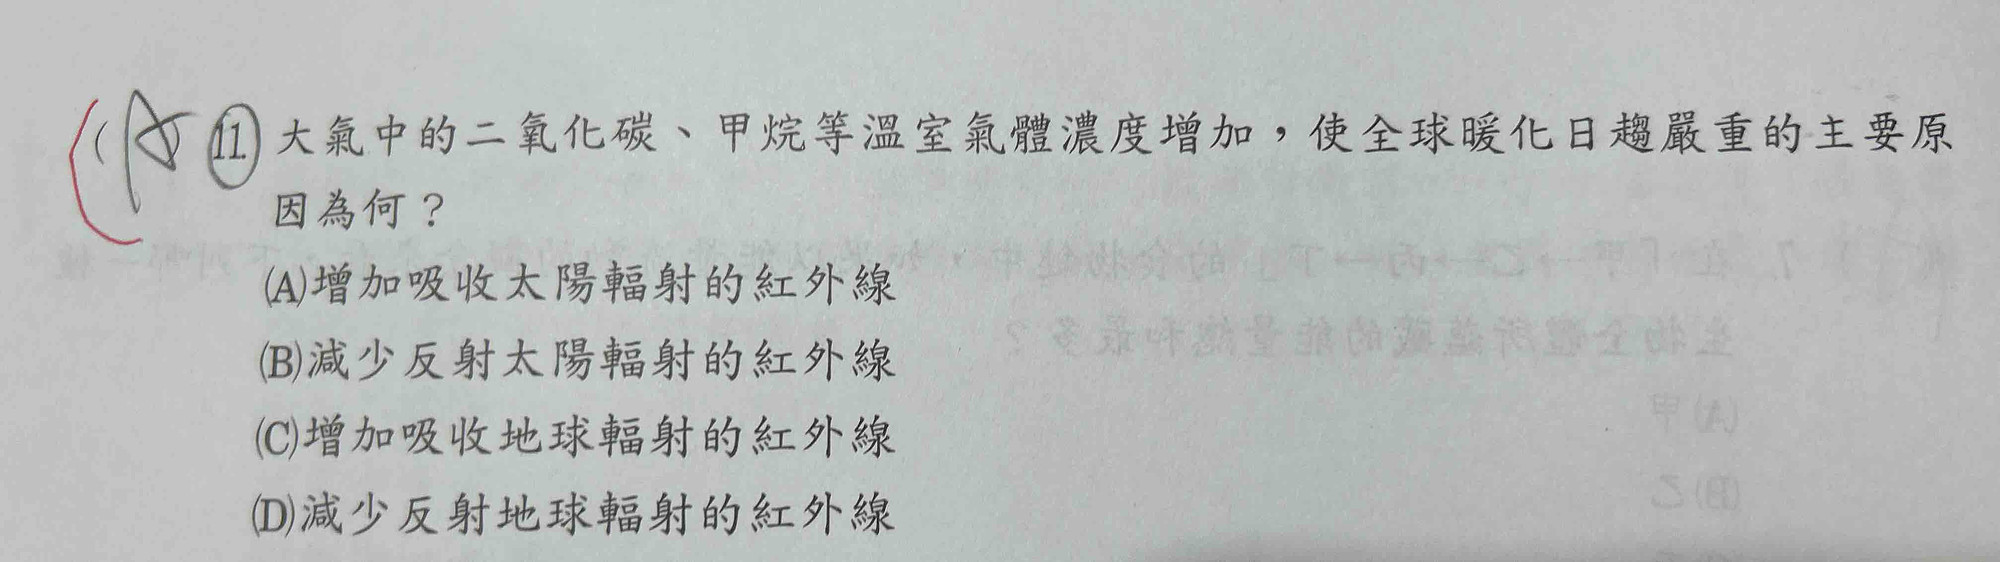 (A 11 大氣中的二氧化碳、甲烷等溫室氣體濃度增加，使全球暖化日趨嚴重的主要原
因為何？
(A)增加吸收太陽輻射的紅外線
(B)減少反射太陽輻射的紅外線
(C)增加吸收地球輻射的紅外線
(D)減少反射地球輻射的紅外線